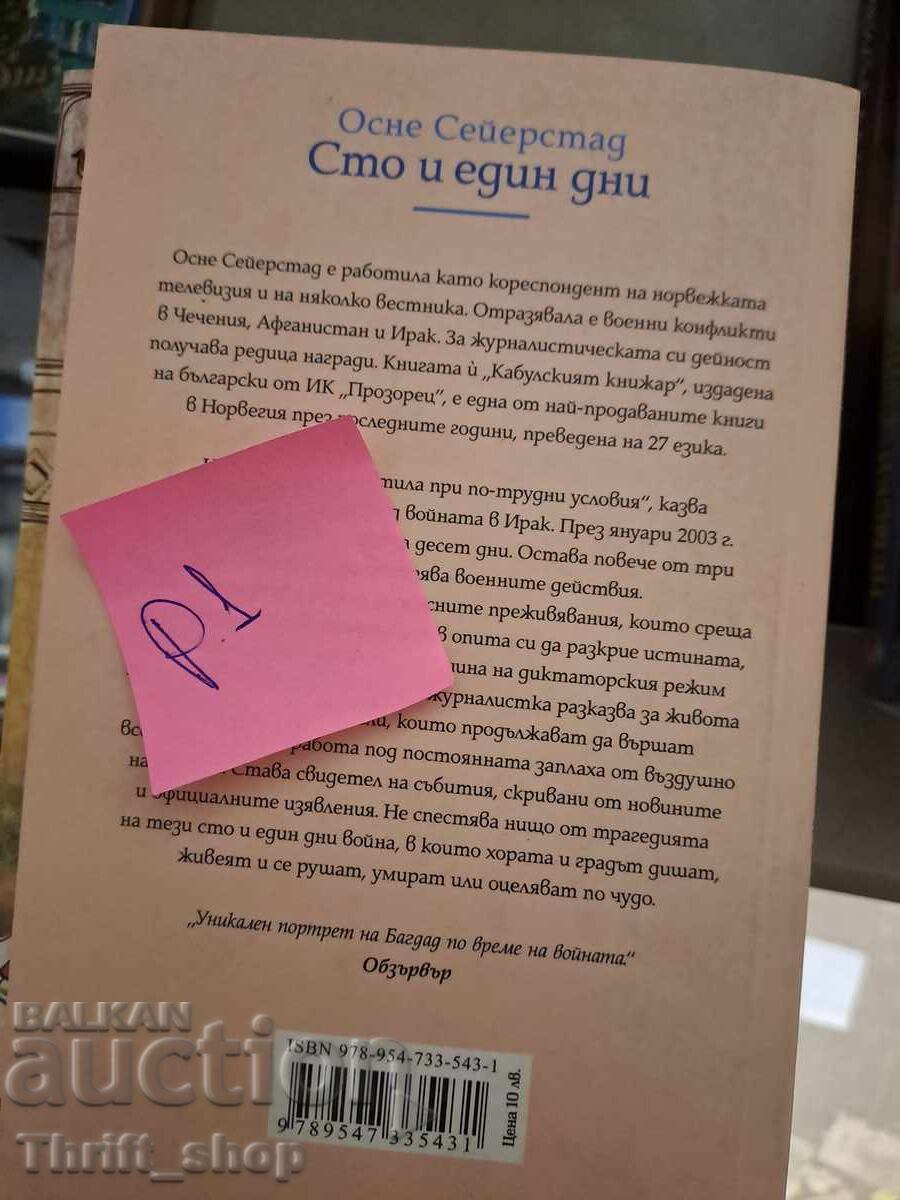 Осне Сейерстад
Сто и един дни
Осне Сейерстад е работила като кореспондент на норвежката
телевизия и на няколко вестника. Отразявала е военни конфликти
в Чечения, Афганистан и Ирак. За журналистическата си дейност
получава редица награди. Книгата ѝ „Кабулският книжар“, издадена
на български от ИК „Прозорец“, е една от най-продаваните книги
в Норвегия през последните години, преведена на 27 езика.
при по-трудни условия“, казва
войната в Ирак. През януари 2003 г.
десет дни. Остава повече от три
военните действия.
преживявания, които среща
в опита си да разкрие истината,
на диктаторския режим
журналистка разказва за живота
които продължават да вършат
работа под постоянната заплаха от въздушно
Става свидетел на събития, скривани от новините
и официалните изявления. Не спестява нищо от трагедията
на тези сто и един дни война, в които хората и градът дишат,
живеят и се рушат, умират или оцеляват по чудо.
„Уникален портрет на Багдад по време на войната.“
Обзървър
P1
ISBN 978-954-733-543-1
9 789547 335431
Цена 10 лв.
BALKAN
auction
Thrift_shop